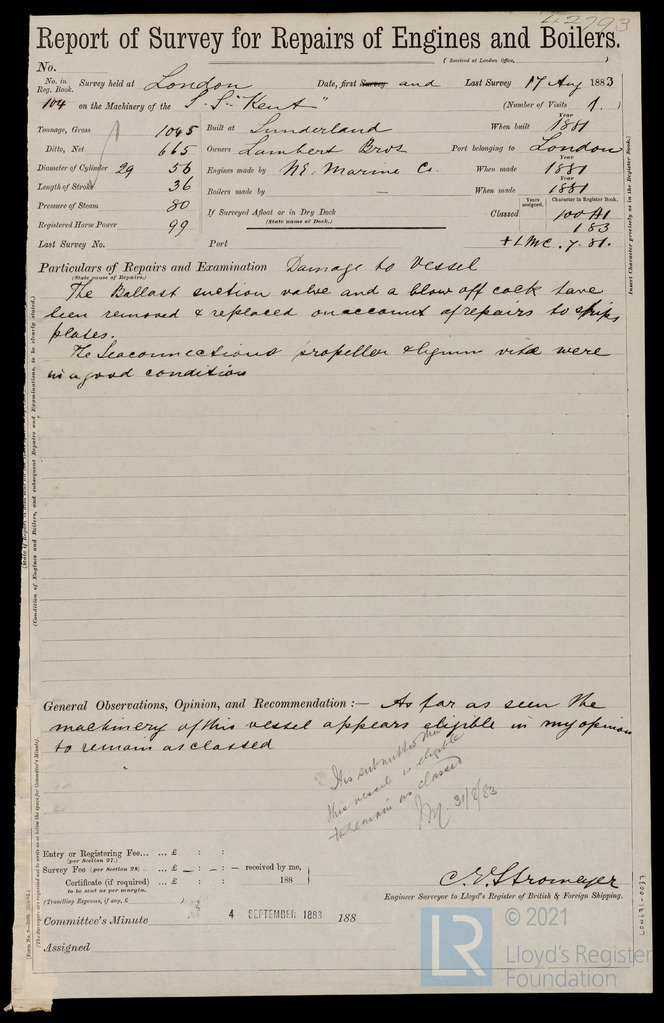 42793
Report of Survey for Repairs of Engines and Boilers.
(Received at London Office, )
No.
No. in Reg. Book. Survey held at London Date, first Survey and Last Survey 17 Aug 1883
104 on the Machinery of the S.S. "Kent" (Number of Visits 1.)
Tonnage, Gross 1045 Built at Sunderland When built Year 1881
Ditto, Net 665 Owners Lambert Bros Port belonging to London
Diameter of Cylinder 29 56 Engines made by N.E. Marine Co. When made Year 1881
Length of Stroke 36 Boilers made by — When made Year 1881
Pressure of Steam 80 If Surveyed Afloat or in Dry Dock Classed Years assigned. Character in Register Book. 100A1
Registered Horse Power 99 (State name of Dock.) 1 83
Last Survey No. Port +LMC. 7.81.
Insert Character precisely as in the Register Book.
Particulars of Repairs and Examination Damage to Vessel
(State cause of Repairs.)
The Ballast suction valve and a blow off cock have
been removed & replaced on account of repairs to ships
plates.
The Seaconnections propeller & lignum vitæ were
in a good condition
(Condition of Engines and Boilers, and subsequent Repairs and Examinations, to be clearly stated.)
General Observations, Opinion, and Recommendation :— As far as seen the
machinery of this vessel appears eligible in my opinion
to remain as classed
It is submitted that
this vessel is eligible
to remain as classed
31/8/83
Entry or Registering Fee... ... £ : :
(per Section 27.)
Survey Fee (per Section 28) .. ... £ — : — : — received by me,
Certificate (if required) ... £ : : 188
to be sent as per margin.
(Travelling Expenses, if any, £ )
C. E. Stromeyer
Engineer Surveyor to Lloyd's Register of British & Foreign Shipping.
Committee's Minute 4 SEPTEMBER 1883 188
Assigned
(The Surveyors are requested not to write on or below the space for Committee's Minute.)
LON631-0037
LR
© 2021
Lloyd's Register
Foundation